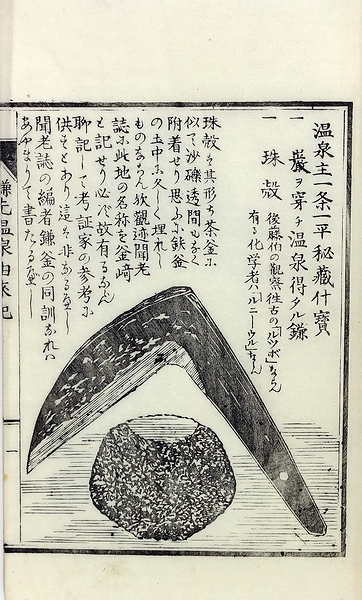 温泉主一条一平秘藏什寳
一 巌ヲ穿チ温泉得タル鎌
一 珠殻 後藤伯の觀察徃古の「ルツボ」ならん
有る化学者ハ「ルニーウル」ならん
珠殻ハ其形ち茶釜ニ
似て沙礫透間もなく
附着せり思ふニ鉄釜
の土中ニ久しく埋れし
ものならん欤觀迹聞老
誌ニ此地の名称を釜崎
と記せり必ず故有るならん
聊記して考証家の参考に
供すとあり這ハ非なるべし
聞老誌の編者鎌釜の同訓なれハ
あやまりて書たるべし
鎌先温泉由来記
一